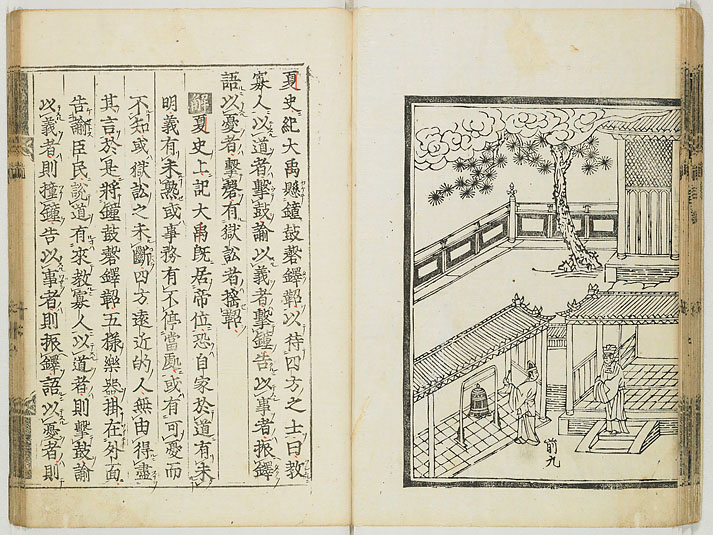 前九
夏史紀大禹懸鐘鼓磬鐸鞀以待四方之士曰教
寡人以道者擊鼓諭以義者擊鐘告以事者振鐸
語以憂者擊磬有獄訟者搖鞀
解夏史上記大禹既居帝位恐自家於道有未
明義有未熟或事務有不停當處或有可憂而
不知或獄訟之未斷四方遠近的人無由得盡
其言於是將鐘鼓磬鐸鞀五樣樂器掛在外面
告諭臣民說道有來教寡人以道者則擊鼓諭
以義者則撞鐘告以事者則振鐸語以憂者則